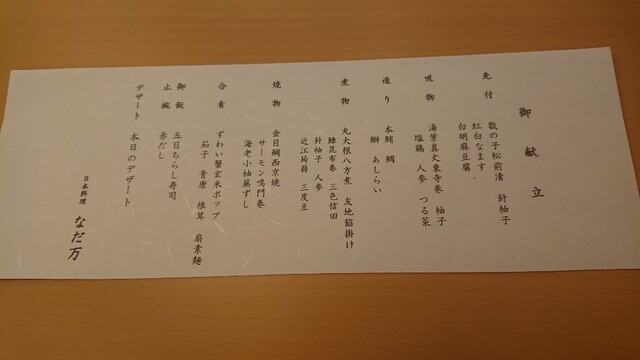 御献立
先付
数の子松前漬 針柚子
紅白なます
白胡麻豆腐
吸物
湯葉真丈東寺巻 柚子
塩鶏 人参 つる菜
造り
本鮪 鯛
鰤 あしらい
煮物
丸大根八方煮 友地餡掛け
鰊昆布巻 三色信田
針柚子 人参
近江蒟蒻 三度豆
焼物
金目鯛西京焼
サーモン鳴門巻
海老小袖蒸ずし
合肴
ずわい蟹玄米ポップ
茄子 青唐 椎茸 扇素麺
御飯
五目ちらし寿司
止椀
赤だし
デザート
本日のデザート
日本料理 なだ万